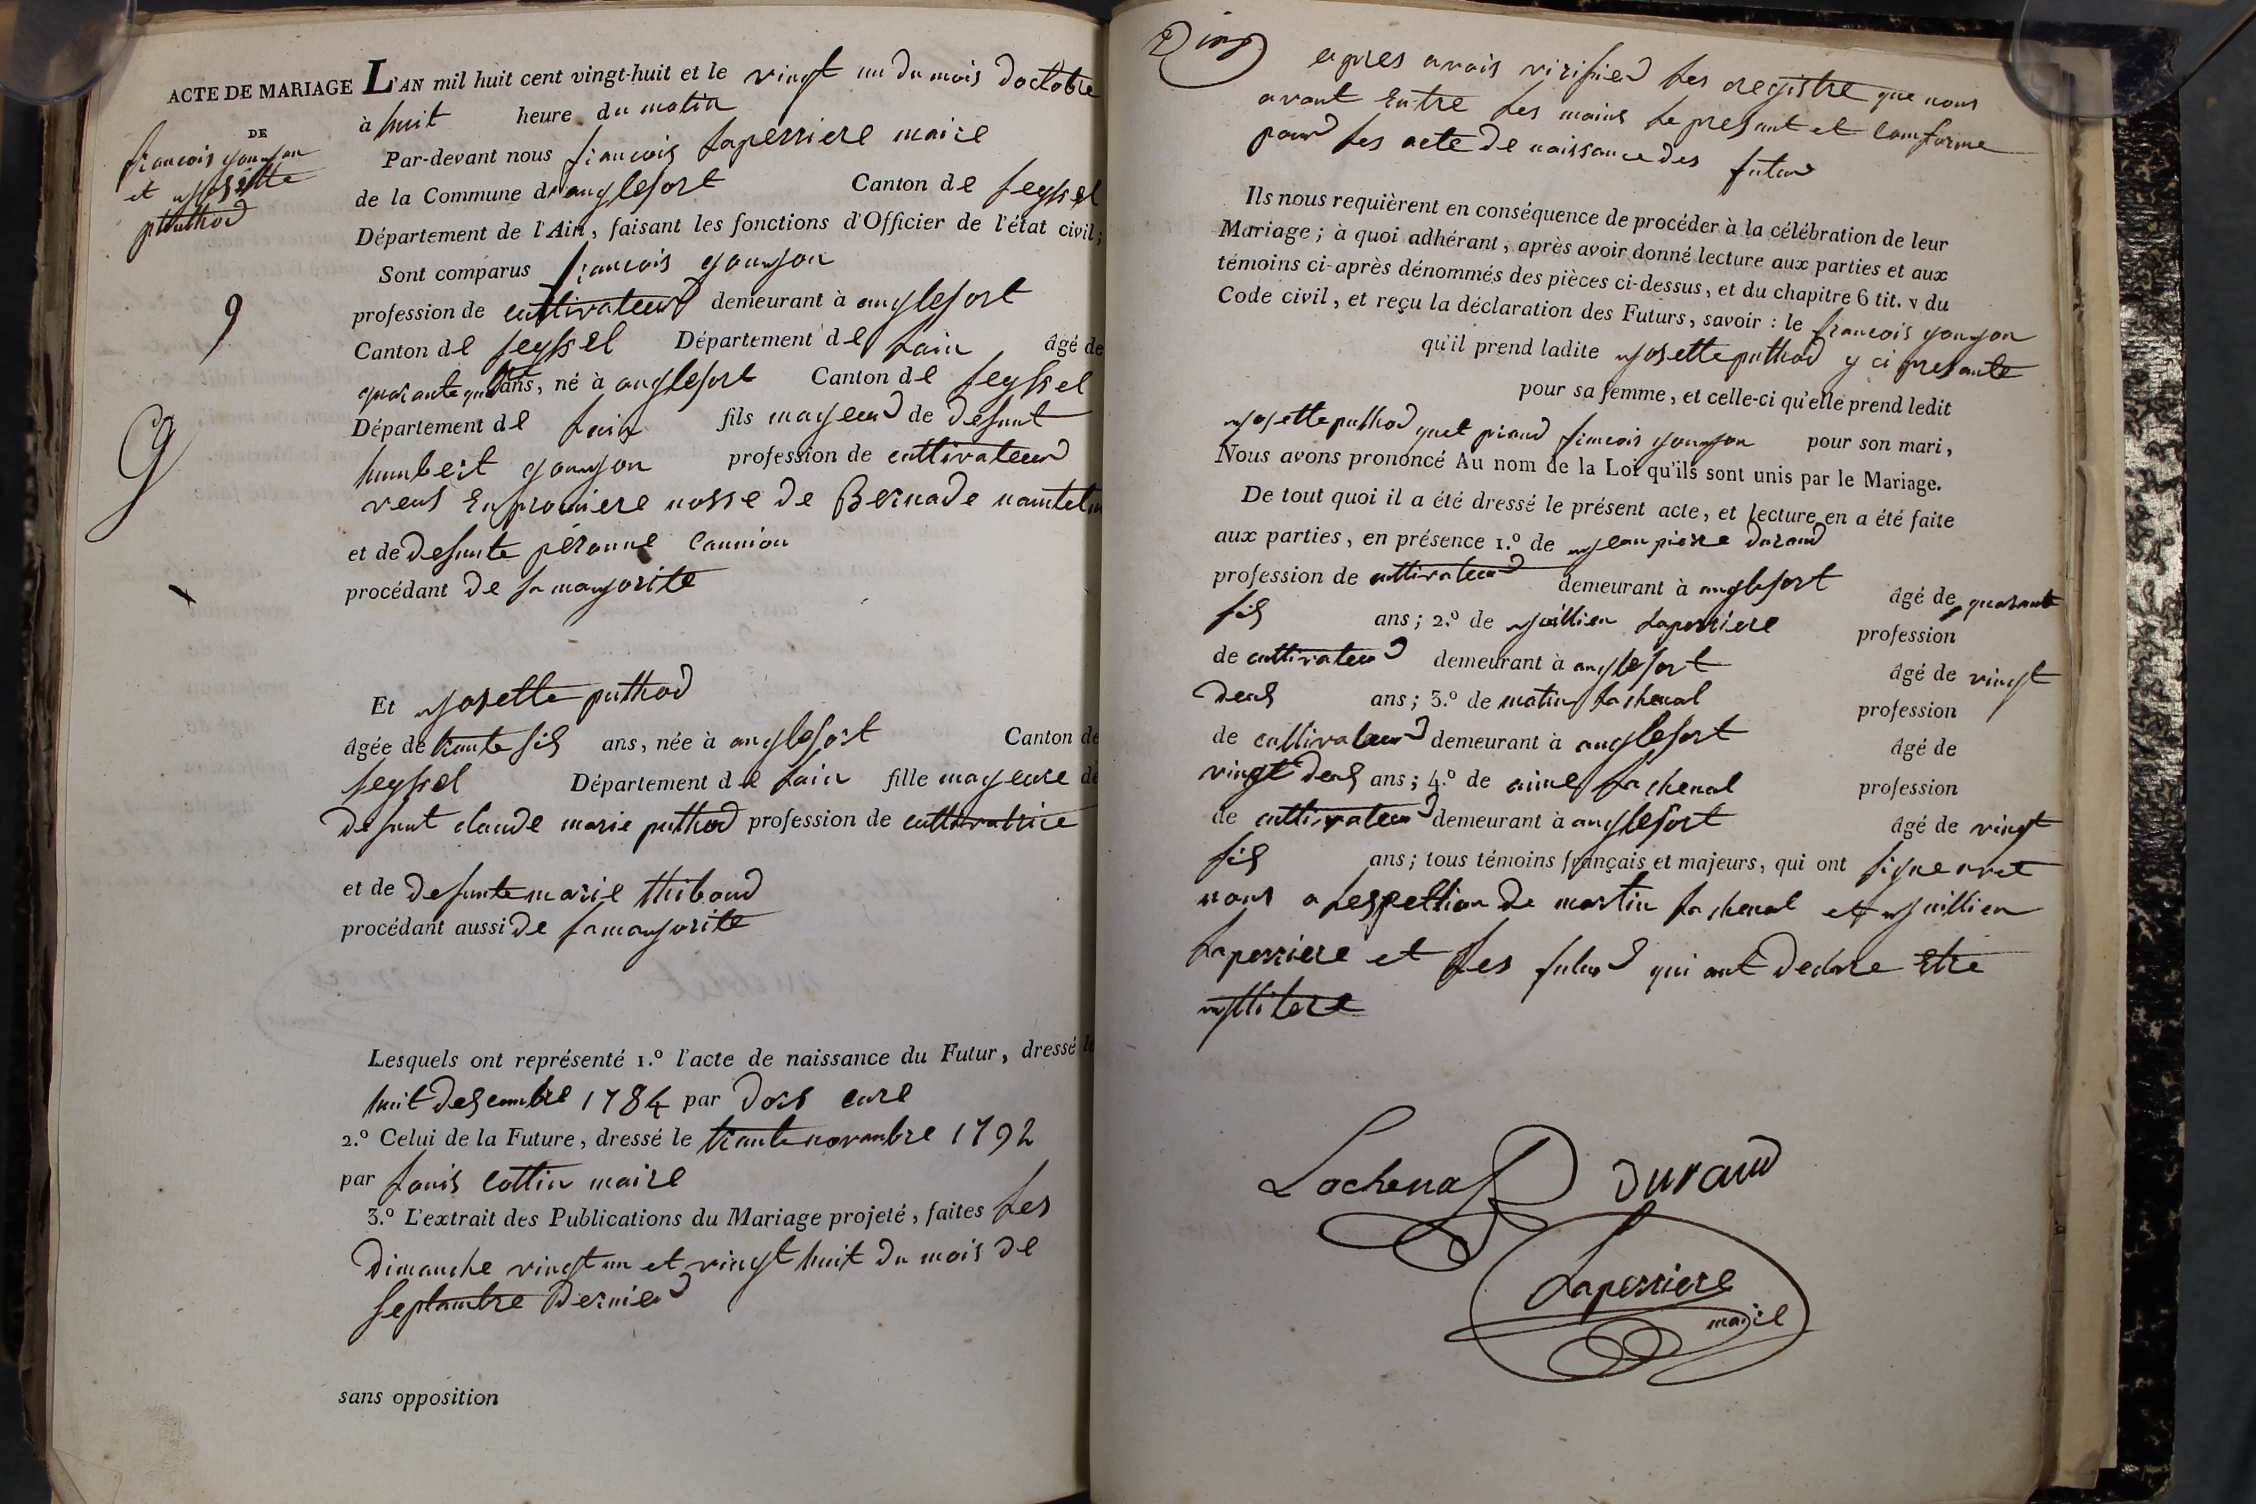 ACTE DE MARIAGE L'AN mil huit cent vingt-huit et le vingt un du mois doctobre
à huit heure du matin
DE
francois goujon
et josette
puthod
Par-devant nous francois Laperriere maire
de la Commune d'anglefort Canton de seyssel
Département de l'Ain, faisant les fonctions d'Officier de l'état civil;
Sont comparus francois goujon
9
profession de cultivateur demeurant à anglefort
Canton del seyssel Département del lain âgé de
quarante ans, né à anglefort Canton del seyssel
Département del lain fils mayeur de defunt
humbert goujon profession de cultivateur
veuf En premiere nosse de Bernade
et de defunte peronne
procédant de sa majorite
Et josette puthod
âgée de trante sis ans, née à anglefort Canton de
seyssel Département del lain fille mayeure de
defunt claude marie puthod profession de cultivatrice
et de defunte marie thiboud
procédant aussi de sa majorite
Lesquels ont représenté 1.º l'acte de naissance du Futur, dressé le
huit desembre 1784 par cure
2.º Celui de la Future, dressé le trante novambre 1792
par louis cottin maire
3.º L'extrait des Publications du Mariage projeté, faites Les
Dimanche vingt un et vingt huit du mois de
septambre Dernier
sans opposition
apres avois virifier Les registre que nous
avont Entre Les mains Le presant et comforme
pour Les acte de naissance des futur
Ils nous requièrent en conséquence de procéder à la célébration de leur
Mariage; à quoi adhérant, après avoir donné lecture aux parties et aux
témoins ci-après dénommés des pièces ci-dessus, et du chapitre 6 tit. v du
Code civil, et reçu la déclaration des Futurs, savoir : le francois goujon
qu'il prend ladite josette puthod y ci presante
pour sa femme, et celle-ci qu'elle prend ledit
josette puthod francois goujon pour son mari,
Nous avons prononcé Au nom de la Loi qu'ils sont unis par le Mariage.
De tout quoi il a été dressé le présent acte, et lecture en a été faite
aux parties, en présence 1.º de jean pierre durand
profession de cultivateur demeurant à anglefort âgé de quarante
sis ans; 2.º de juillien Laperriere profession
de cultivateur demeurant à anglefort âgé de vingt
deus ans; 3.º de matin Lachenal profession
de cultivateur demeurant à anglefort âgé de
vingt deus ans; 4.º de aime Lachenal profession
de cultivateur demeurant à anglefort âgé de vingt
sis ans; tous témoins français et majeurs, qui ont signe avet
nous a Lespettion de martin Lachenal et juillien
Laperriere et Les futur qui ont declare Etre
jllitere
Lachenal Durand
Laperriere
maire